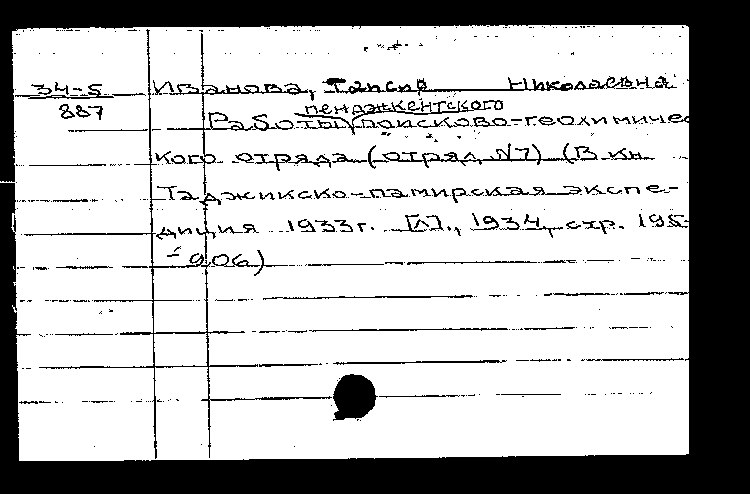 34-5
887
Иванова, Николаевна
пенджкентского
Работы поисково-геохимичес
кого отряда (отряд №7) (В кн.
Таджикско-памирская экспе-
диция 1933г. Л., 1934, стр. 195-
-206)